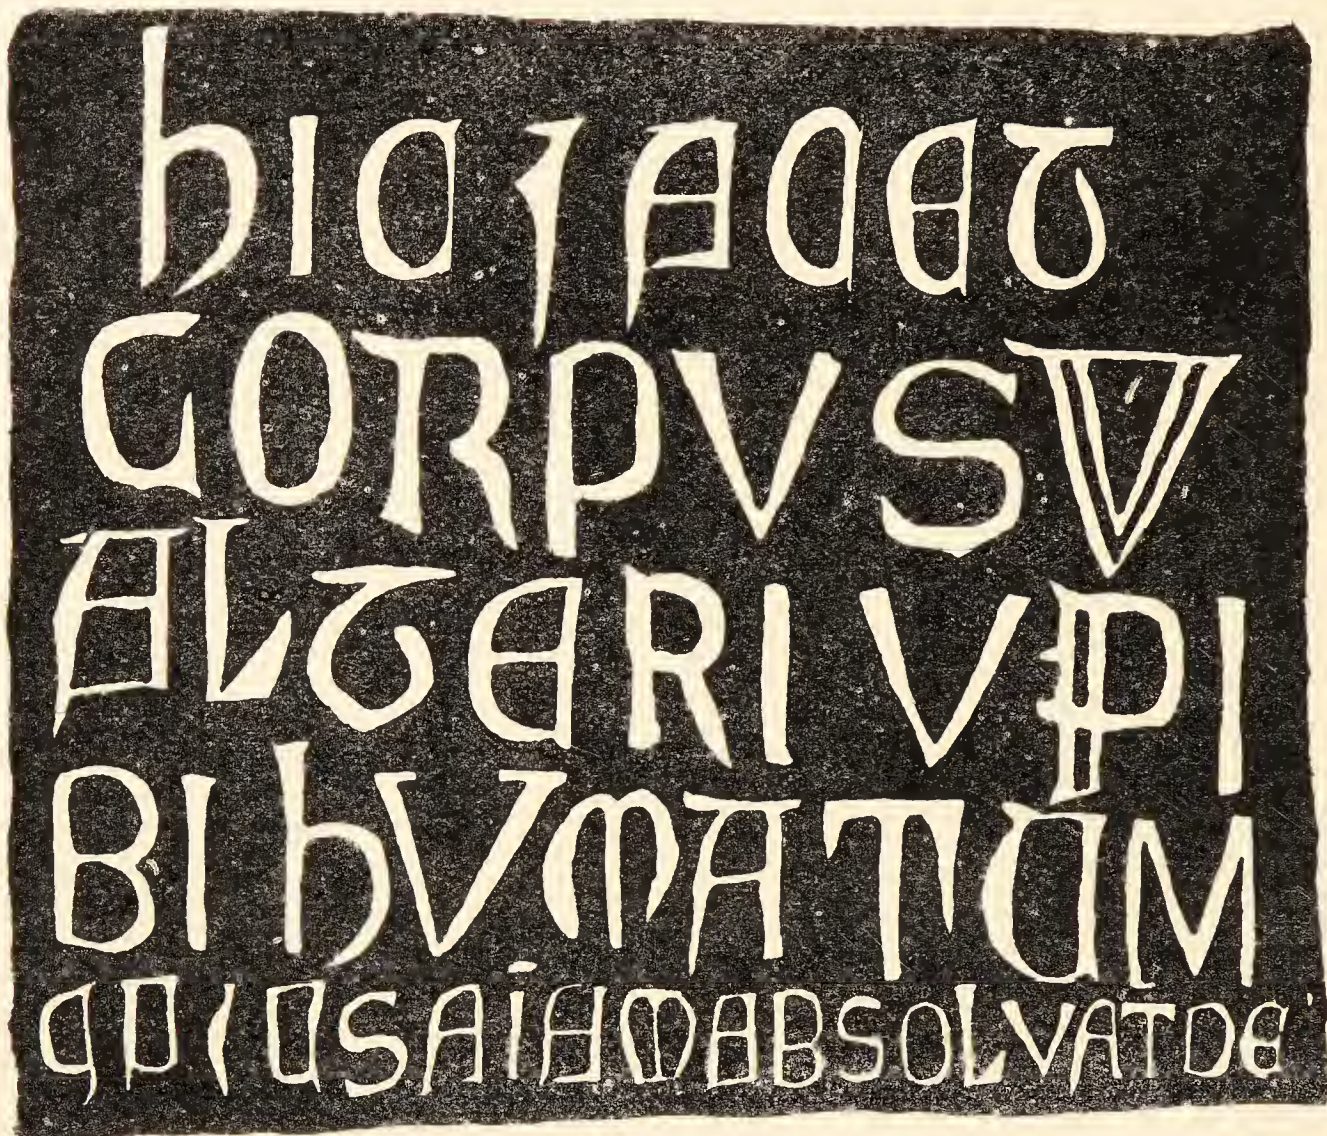 HIC JACET
CORPVS V
ALTERI VPI
BI HVMATUM
CUIUS AIAM ABSOLVAT DE'